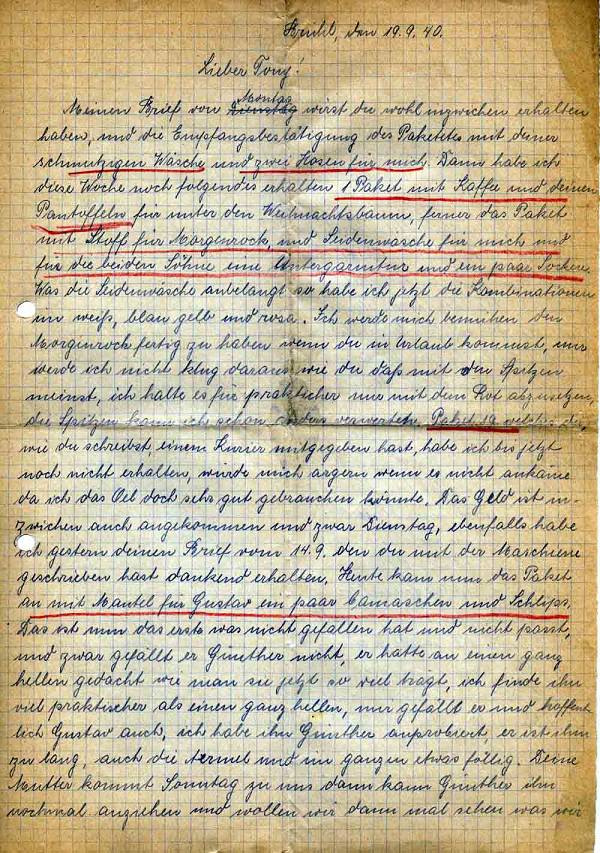 Brühl, den 19.9.40.
Lieber Tony!
Montag
Meinen Brief von Dienstag wirst du wohl inzwichen erhalten
haben, und die Empfangsbestätigung des Paketetes mit deiner
schmutzigen Wäsche und zwei Hosen für mich. Dann habe ich
diese Woche noch folgendes erhalten 1 Paket mit Kaffee und deinen
Pantoffeln für unter den Weihnachtsbaum, ferner das Paket
mit Stoff für Morgenrock, und Seidenwäsche für mich und
für die beiden Söhne eine Untergarnitur und ein paar Socken.
Was die Seidenwäsche anbelangt so habe ich jetzt die Kombinationen
in weiß, blau gelb und rosa. Ich werde mich bemühen den
Morgenrock fertig zu haben wenn du in Urlaub kommst, nur
werde ich nicht klug daraus wie du daß mit den Spitzen
meinst, ich halte es für praktischer nur mit dem Rot abzusetzen,
die Spitzen kann ich schon anders verwerten. Paket 19 welches du,
wie du schreibst, einem Kurier mitgegeben hast, habe ich bis jetzt
noch nicht erhalten, würde mich ärgern wenn es nicht ankäme
da ich das Oel doch sehr gut gebrauchen könnte. Das Geld ist in-
zwichen auch angekommen und zwar Dienstag, ebenfalls habe
ich gestern deinen Brief vom 14.9. den du mit der Maschiene
geschrieben hast dankend erhalten. Heute kam nun das Paket
an mit Mantel für Gustav ein paar Gamaschen und Schlips.
Das ist nun das erste was nicht gefallen hat und nicht passt,
und zwar gefällt er Günther nicht, er hatte an einen ganz
hellen gedacht wie man sie jetzt so viel tragt, ich finde ihn
viel praktischer als einen ganz hellen, mir gefällt er und hoffent-
lich Gustav auch, ich habe ihn Günther anprobiert, er ist ihm
zu lang, auch die Aermel und im ganzen etwas fällig. Deine
Mutter kommt Sonntag zu uns dann kann Günther ihn
nochmal anziehen und wollen wir dann mal sehen was wir